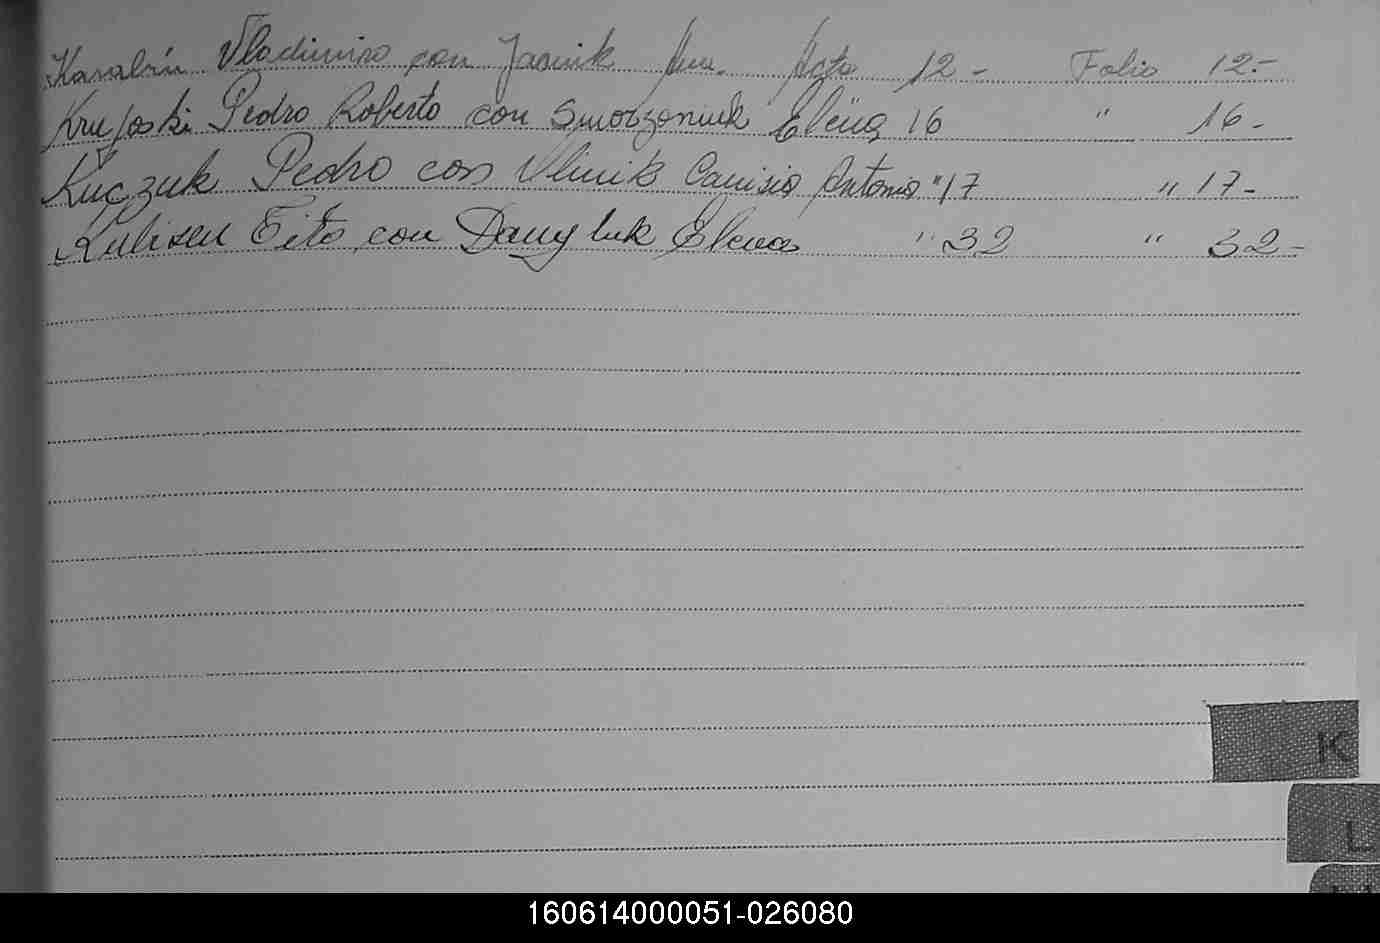 Karabin Vladimiro con Jasnik Ana. Acta 12 - Folio 12.-
Krujoski Pedro Roberto con Smorzoniuk Elena 16 " 16-
Kuczuk Pedro con Olinik Canisia Antonia " 17 " 17-
Kulisen Tito con Danyluk Elena " 32 " 32-
K
L
160614000051-026080